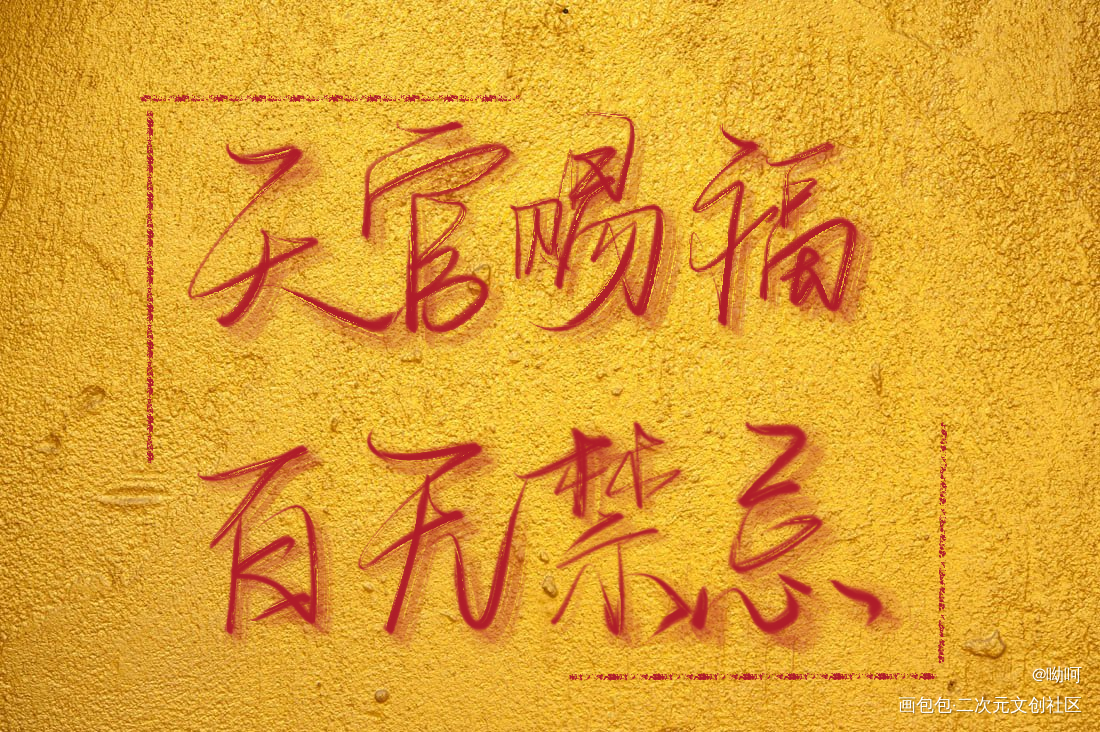 天官赐福
百无禁忌
@呦呵
画包包·二次元文创社区